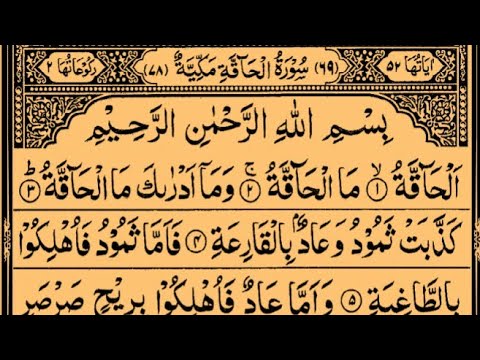 اٰيَاتُهَا ٥٢ (٦٩) سُوْرَةُ الْحَآقَّةِ مَكِّيَّةٌ (٧٨) رُكُوْعَاتُهَا ٢
بِسْمِ اللهِ الرَّحْمٰنِ الرَّحِيْمِ
اَلْحَآقَّةُ ۙ﴿١﴾ مَا الْحَآقَّةُ ۚ﴿٢﴾ وَمَآ اَدْرٰىكَ مَا الْحَآقَّةُ ؕ﴿٣﴾
كَذَّبَتْ ثَمُوْدُ وَعَادٌۢ بِالْقَارِعَةِ ﴿٤﴾ فَاَمَّا ثَمُوْدُ فَاُهْلِكُوْا
بِالطَّاغِيَةِ ﴿٥﴾ وَاَمَّا عَادٌ فَاُهْلِكُوْا بِرِيْحٍ صَرْصَرٍ